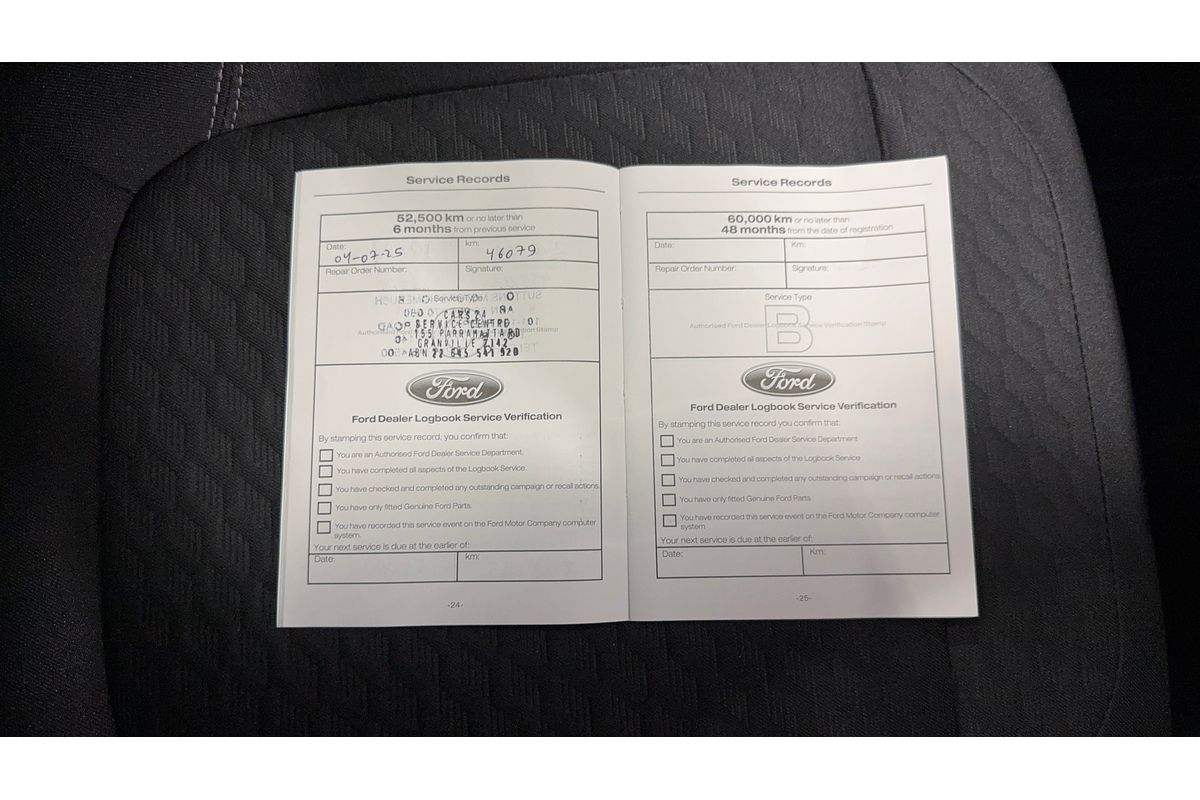 Service Records
52,500 km or no later than
6 months from previous service
Date:
04-07-25
km:
46079
Repair Order Number:
Signature:
Service Type
CARS24
SERVICE CENTRE
155 PARRAMATTA RD
GRANVILLE 2142
ABN 22 645 541 920
Ford
Ford Dealer Logbook Service Verification
By stamping this service record, you confirm that:
You are an Authorised Ford Dealer Service Department.
You have completed all aspects of the Logbook Service.
You have checked and completed any outstanding campaign or recall actions.
You have only fitted Genuine Ford Parts.
You have recorded this service event on the Ford Motor Company computer
system.
Your next service is due at the earlier of:
Date:
km:
-24-
Service Records
60,000 km or no later than
48 months from the date of registration
Date:
Km:
Repair Order Number:
Signature:
Service Type
B
Authorised Ford Dealer Logbook Service Verification Stamp
Ford
Ford Dealer Logbook Service Verification
By stamping this service record, you confirm that:
You are an Authorised Ford Dealer Service Department
You have completed all aspects of the Logbook Service
You have checked and completed any outstanding campaign or recall actions
You have only fitted Genuine Ford Parts
You have recorded this service event on the Ford Motor Company computer
system
Your next service is due at the earlier of:
Date:
Km:
-25-